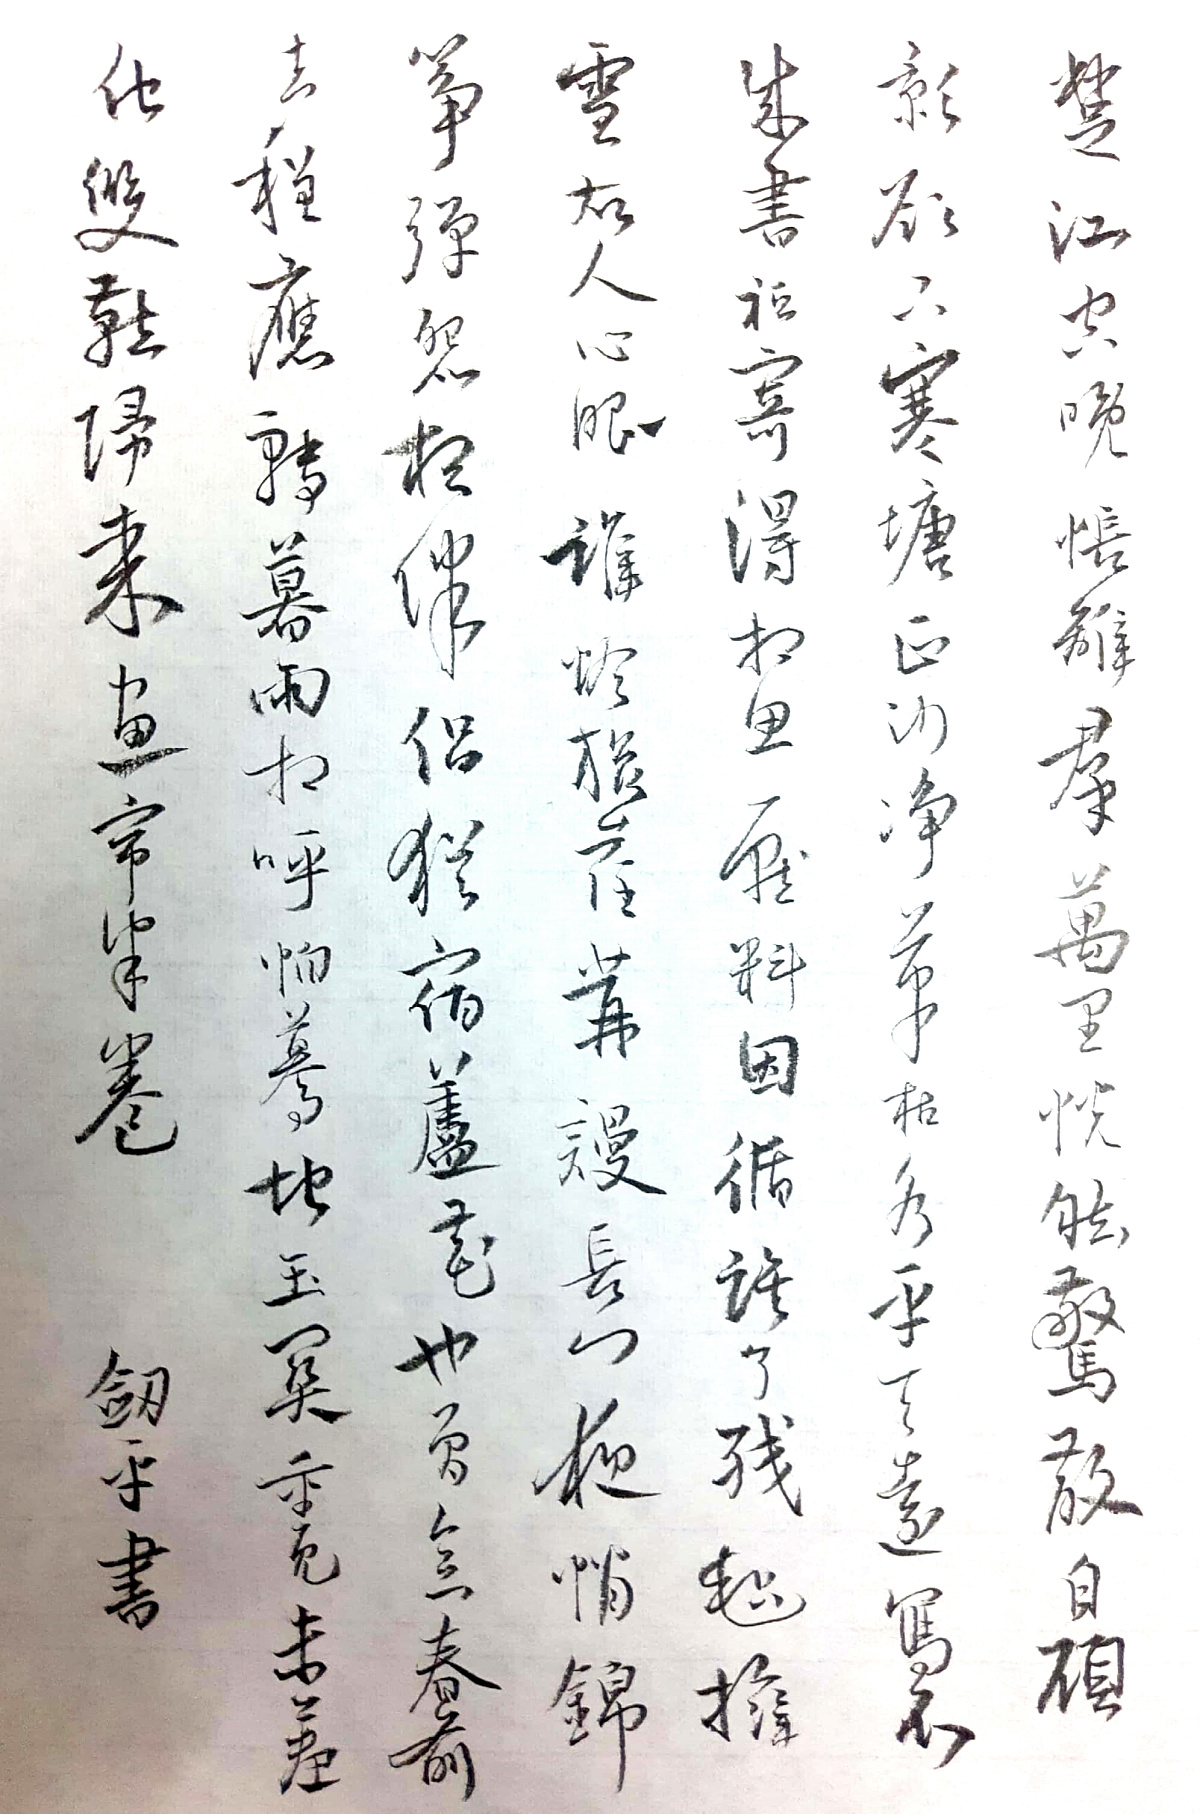 楚江空晚悵離羣萬里恍然驚散自顧
影欲下寒塘正沙净草枯水平天遠寫不
成書祗寄得相思一點料因循誤了殘氈擁
雪故人心眼誰憐旅愁荏苒謾長門夜悄錦
箏彈怨想伴侶猶宿蘆花也曾念春前
去程應轉暮雨相呼怕驀地玉關重見未羞
他雙燕歸來畫帘半卷 劔平書